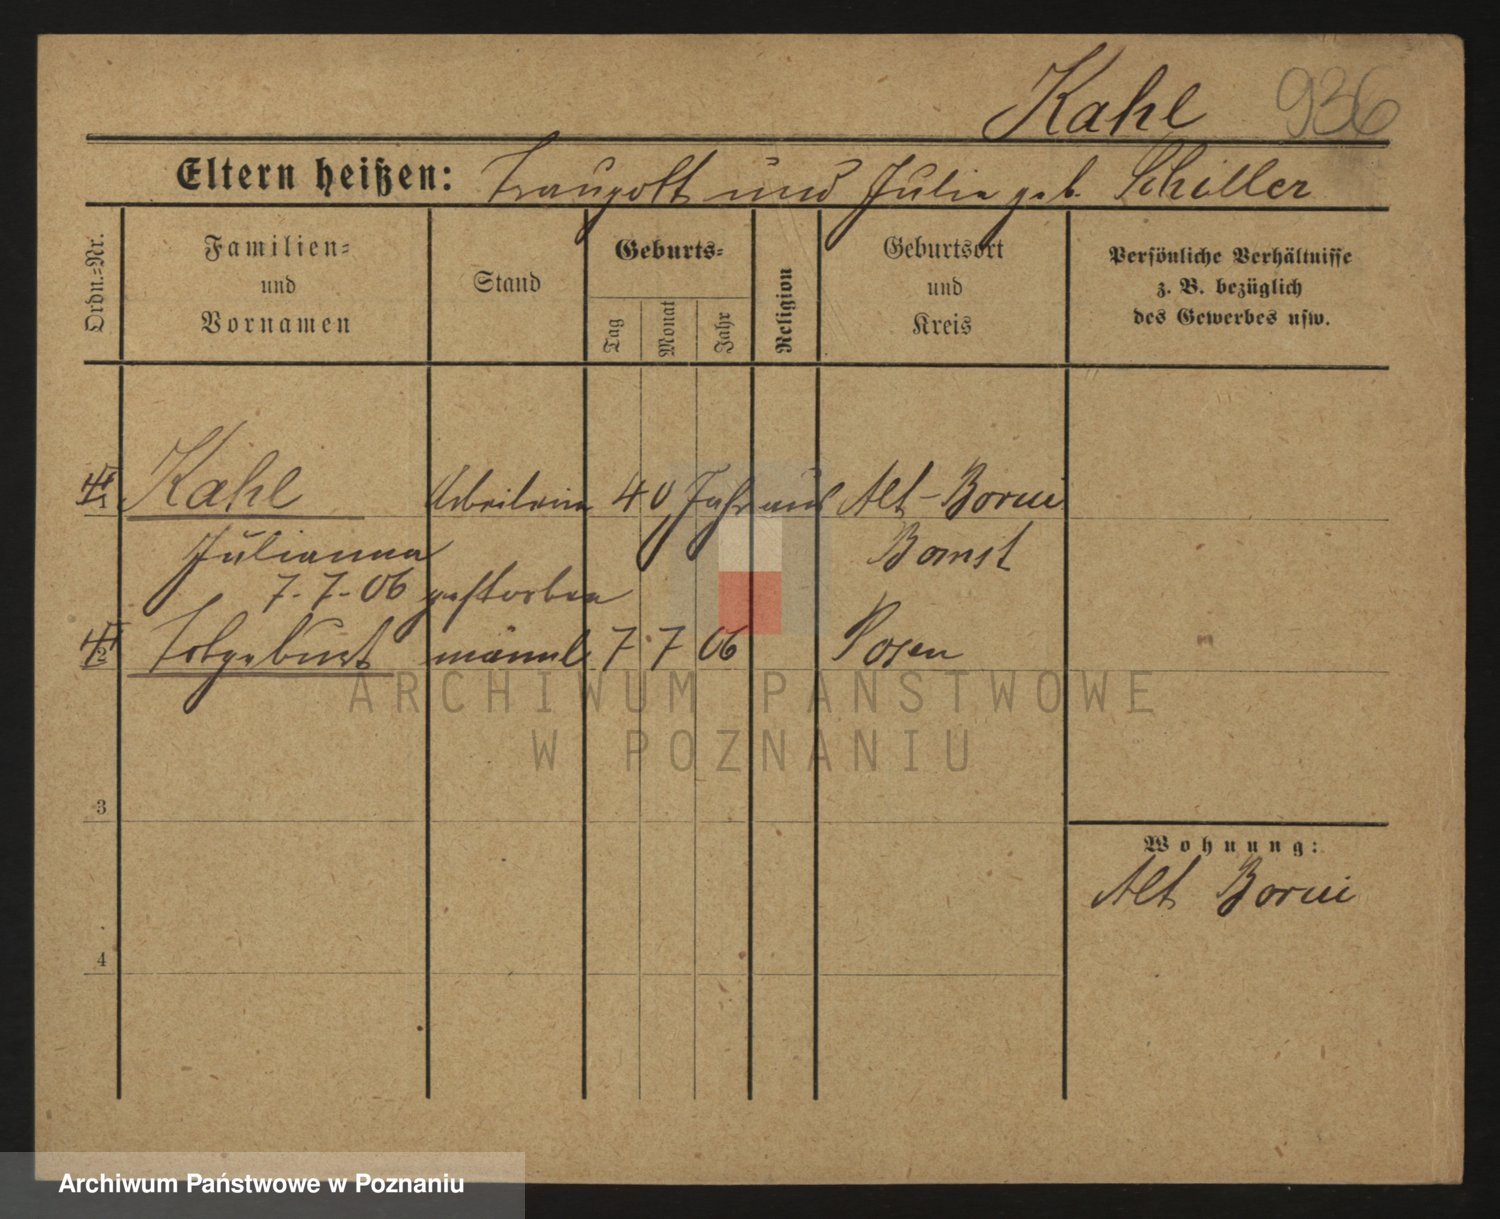 Kahl 936
Eltern heißen: Traugott und Julie geb. Schiller
Ordn.=Nr.
Familien=
und
Vornamen
Stand
Geburts=
Tag
Monat
Jahr
Religion
Geburtsort
und
Kreis
Persönliche Verhältnisse
z. B. bezüglich
des Gewerbes usw.
1 Kahl Arbeiterin 40 Jahr aus Alt-Borui
Julianna Bomst
7. 7. 06 gestorben
2 Totgeburt männl 7 7 06 Posen
3
4
Wohnung:
Alt Borui
ARCHIWUM PAŃSTWOWE
W POZNANIU
Archiwum Państwowe w Poznaniu